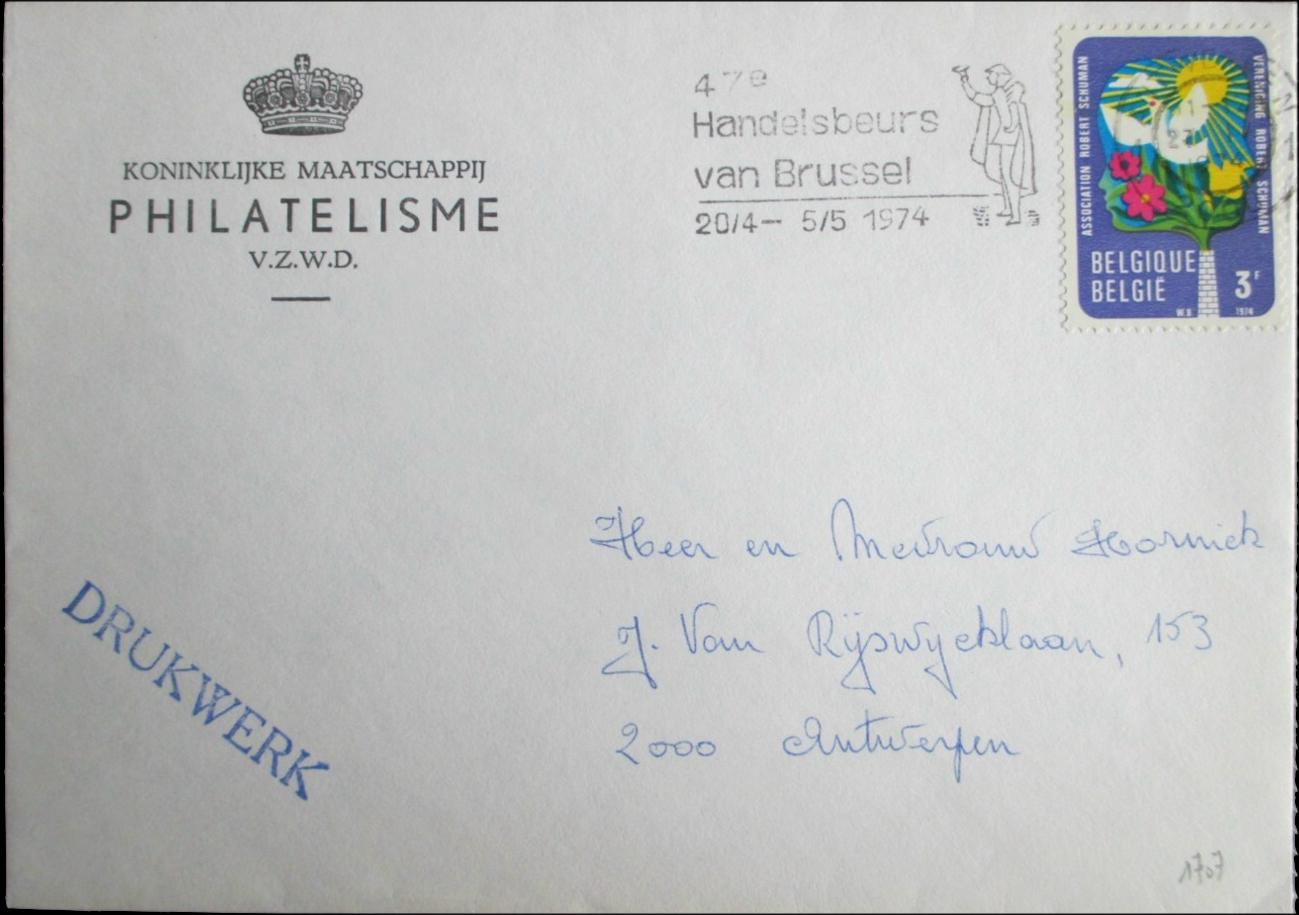 KONINKLIJKE MAATSCHAPPIJ
PHILATELISME
V.Z.W.D.
47e
Handelsbeurs
van Brussel
20/4 – 5/5 1974
ASSOCIATION ROBERT SCHUMAN
VERENIGING ROBERT SCHUMAN
BELGIQUE
BELGIË
3F
W.B 1974
DRUKWERK
Heer en Mevrouw Hornick
J. Van Rijswycklaan, 153
2000 Antwerpen
1707